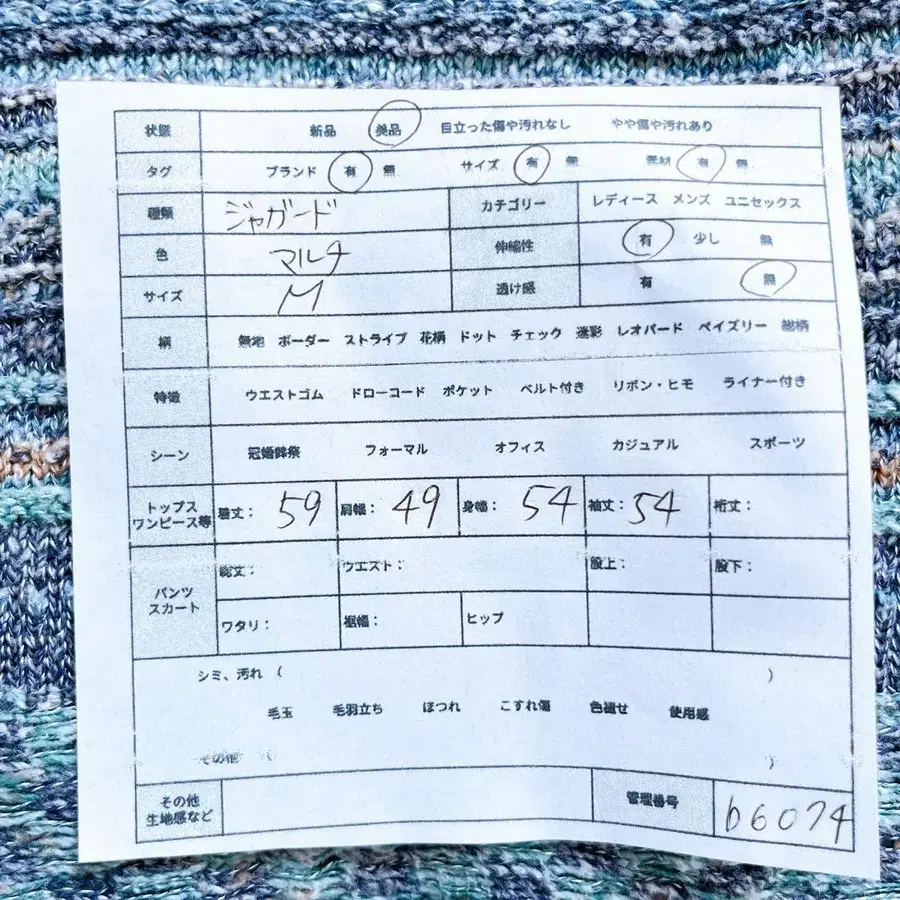 状態 新品 美品 目立った傷や汚れなし やや傷や汚れあり
タグ ブランド 有 無 サイズ 有 無 素材 有 無
種類 ジャガード カテゴリー レディース メンズ ユニセックス
色 マルチ 伸縮性 有 少し 無
サイズ M 透け感 有 無
柄 無地 ボーダー ストライプ 花柄 ドット チェック 迷彩 レオパード ペイズリー 総柄
特徴 ウエストゴム ドローコード ポケット ベルト付き リボン・ヒモ ライナー付き
シーン 冠婚葬祭 フォーマル オフィス カジュアル スポーツ
トップス
ワンピース等 着丈: 59 肩幅: 49 身幅: 54 袖丈: 54 裄丈:
パンツ
スカート
総丈: ウエスト: 股上: 股下:
ワタリ: 裾幅: ヒップ
シミ、汚れ ( )
毛玉 毛羽立ち ほつれ こすれ傷 色褪せ 使用感
その他 ( )
その他
生地感など 管理番号 b6074